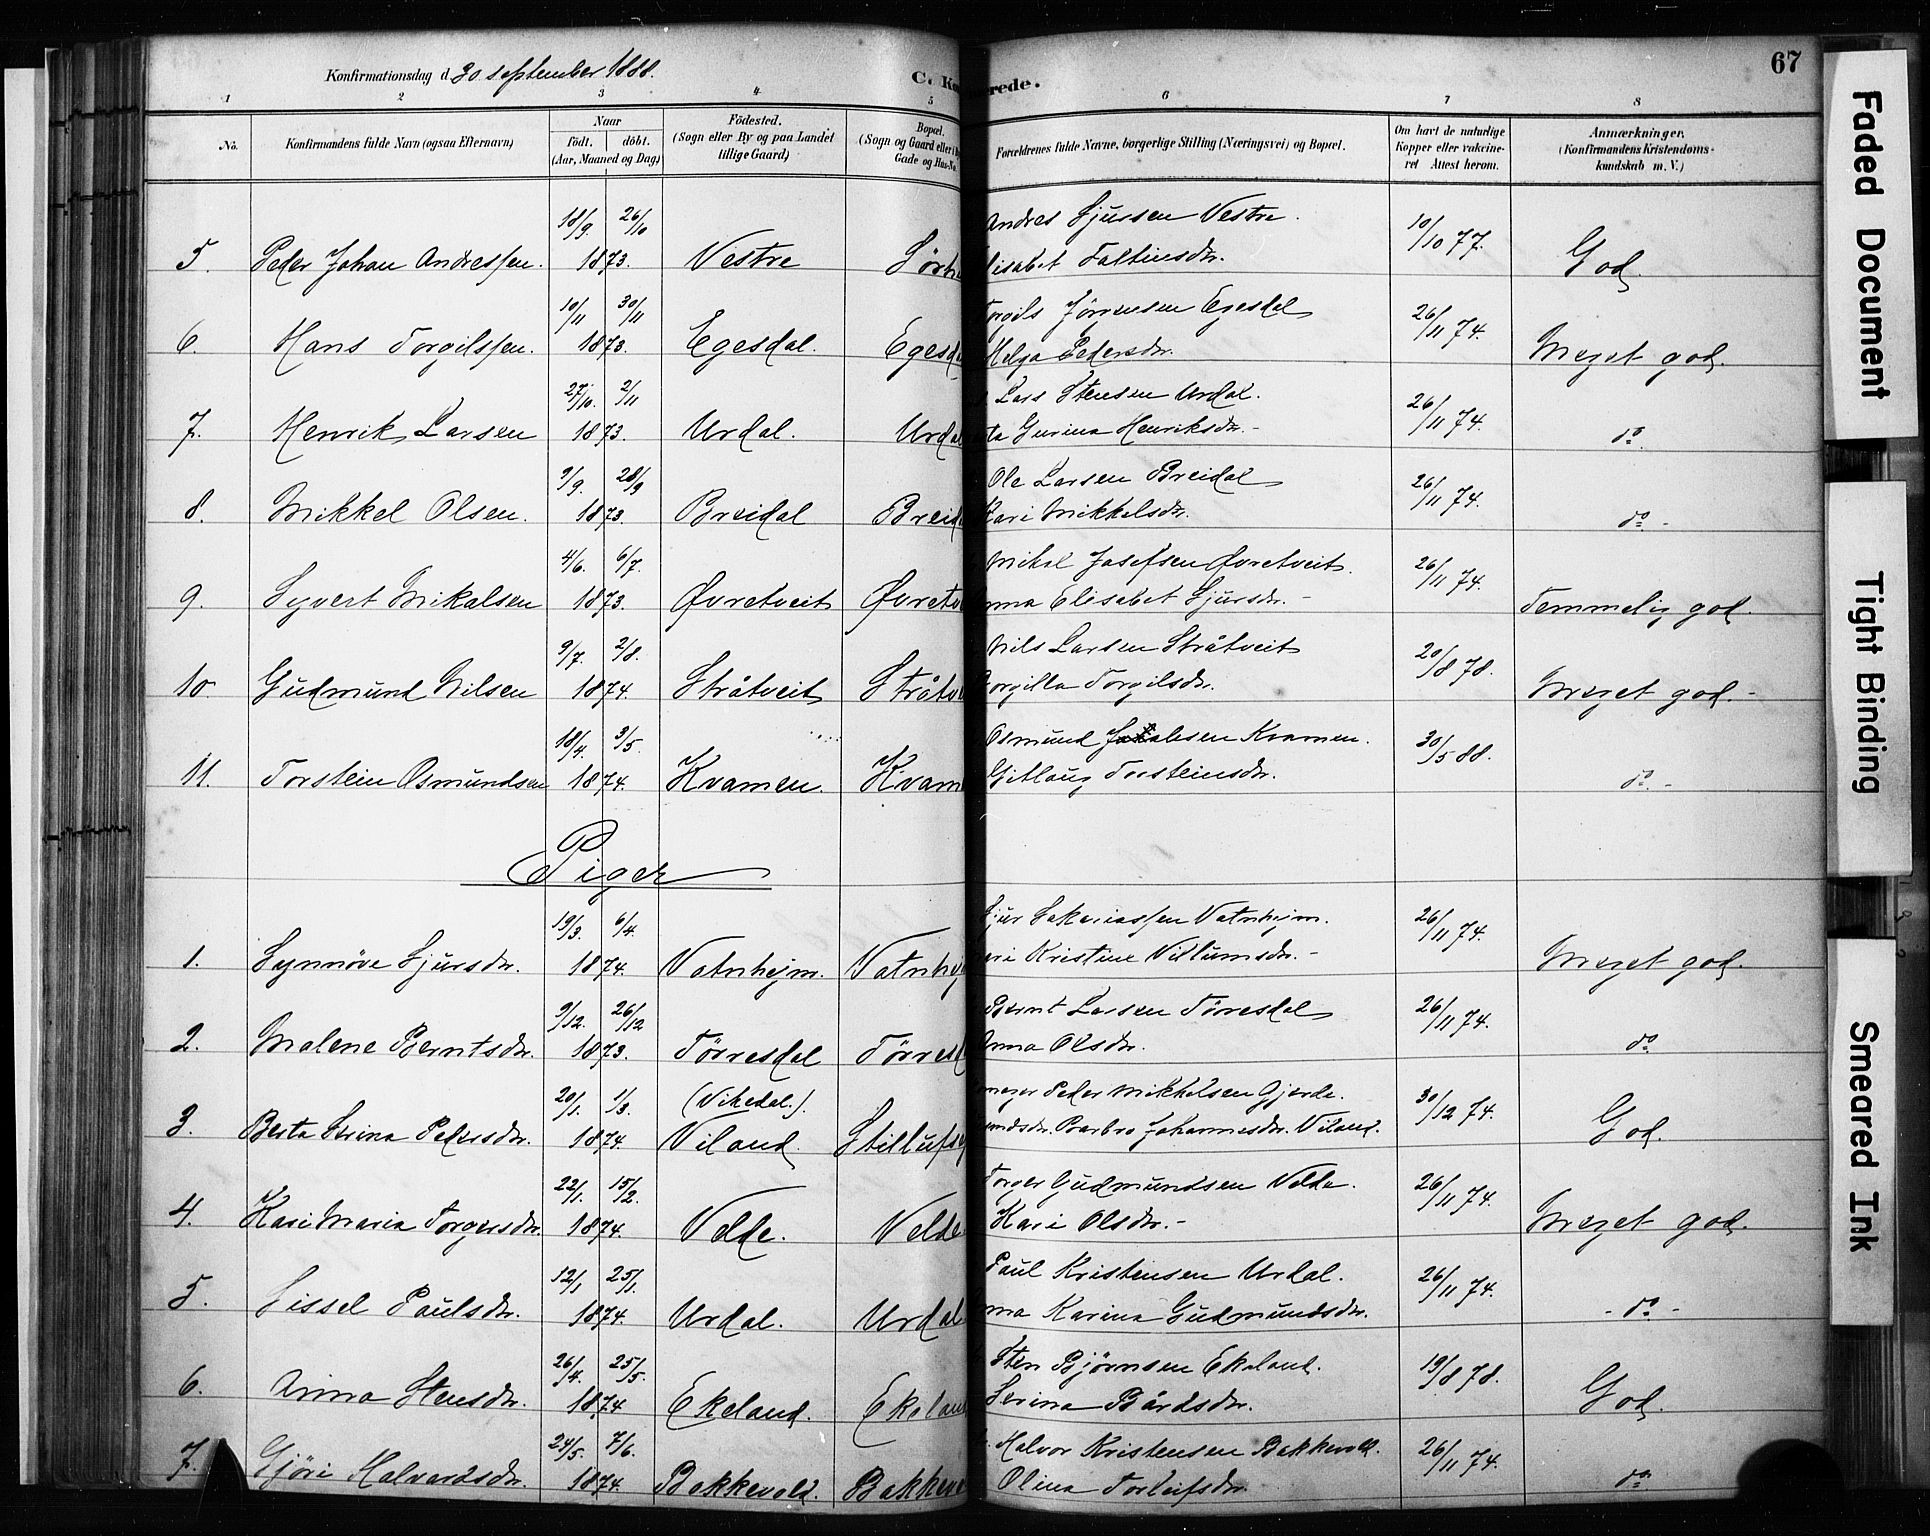 Konfirmationsdag d 30 september 1888.
C. Ko rede.
67
1 2 3 4 5 6 7 8
No.
Konfirmandens fulde Navn (ogsaa Efternavn)
Naar
födt. döbt.
(Aar, Maaned og Dag)
Födested.
(Sogn eller By og paa Landet
tillige Gaard)
Bopæl.
(Sogn og Gaard eller i
Gade og Hus-No.
Forældrenes fulde Navne, borgerlige Stilling (Næringsvei) og Bopæl.
Om havt de naturlige
Kopper eller vakcine-
ret Attest herom.
Anmærkninger.
(Konfirmandens Kristendoms-
kundskab m. V.)
18/9. 26/10 Andres Sjursen Vestre. 10/10 77.
5. Peder Johan Andressen. 1873. Vestre Sörh lisabet Faltinsdr. God.
10/11 30/11 Torgils Jörgensen Egesdal 26/11 74.
6. Hans Torgilssen. 1873. Egesdal. Egesd Helga Pedersdr. Meget god.
27/10. 2/11 Lars Stensen Urdal. 26/11 74.
7. Henrik Larsen 1873. Urdal. Urdal ta Gurina Henriksdr.- do
9/9. 28/9 Ole Larsen Breidal 26/11 74.
8. Mikkel Olsen. 1873. Breidal Breid Kari Mikkelsdr. do -
4/6. 6/7. Mikal Josefsen Øvretveit. 26/11 74.
9. Syvert Mikalsen 1873. Øvretveit Øvretv nna Elisabet Sjursdr.- Temmelig god.
9/7. 2/8. Nils Larsen Stråtveit 20/8 78.
10 Gudmund Nilsen 1874. Stråtveit Stråtv orgilla Torgilsdr. Meget god.-
18/4. 3/5. Osmund Kvamen. 30/5 88.
11. Torstein Osmundsen 1874. Kvamen. Kvam Gitlaug Torsteinsdr. do.-
Piger
19/3. 6/4. Sjur Sakariassen Vatnhejm. 26/11 74.
1. Synnöve Sjursdr. 1874. Vatnhejm. Vatnhej ari Kristine Villumsdr.- Meget god.
9/12. 26/12 Bernt Larsen Törresdal 26/11 74.
2. Malene Berntsdr. 1873. Törresdal Törresd Anna Olsdr. do
20/1. 1/3. (Vikedal.). Peder Mikkelsen Gjerde. 30/12 74.
3. Berta Serina Pedersdr. 1874. Viland. ndsdr. Barbro Johannesdr. Viland. God.
22/1. 15/2. Torger Gudmundsen Velde. 26/11 74.
4. Kari Maria Torgersdr. 1874. Velde. Velde Kari Olsdr.- Meget god.
12/1 25/1. Paul Kristensen Urdal. 26/11 74.
5. Sissel Paulsdr. 1874. Urdal. Urdal nna Karina Gudmundsdr. - do -
26/4. 25/5. Sten Björnsen Ekeland. 19/8 78.
6. Anna Stensdr. 1874 Ekeland. Ekelan Serina Bårdsdr. God.
24/5. 7/6. Halvor Kristensen Bakkevold. 26/11 74.
7. Gjöri Halvardsdr. 1874. Bakkevold. Bakkev Olina Torleifsdr. do
Faded Document
Tight Binding
Smeared Ink